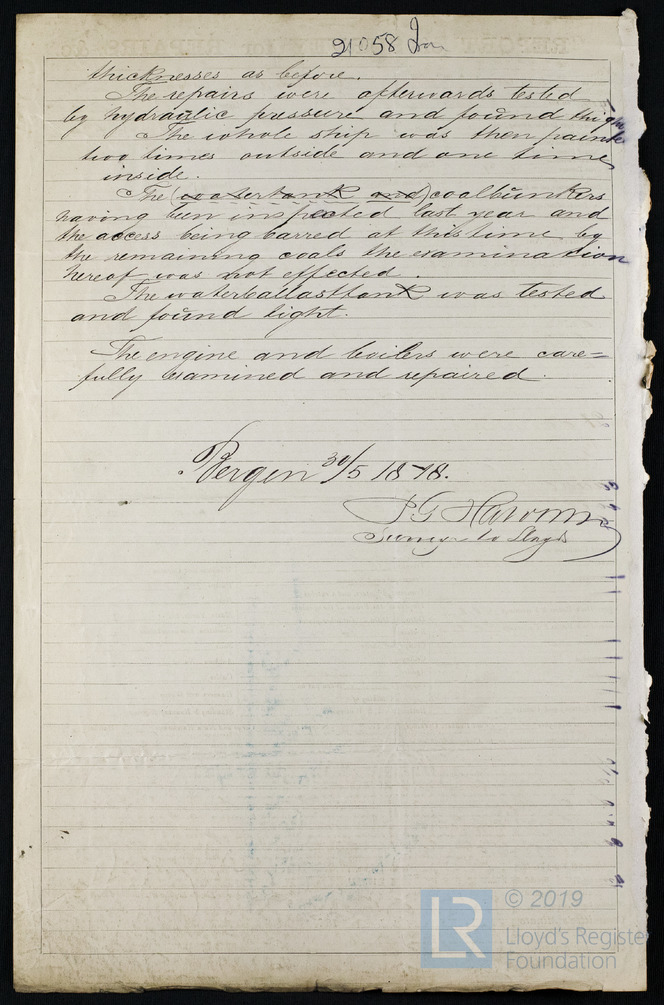 21058 Iron
thicknesses as before.
The repairs were afterwards tested
by hydraulic pressure and found thight
The whole ship was then painted
two times outside and one time
inside.
The (watertank and) coalbunkers
having been inspected last year and
the access being barred at this time by
the remaining coals the examination
hereof was not effected.
The waterballasttank was tested
and found tight.
The engine and boilers were care=
fully examined and repaired.
Bergen 30/5 1878.
Surveyor to Lloyds
LR © 2019
Lloyd's Register
Foundation